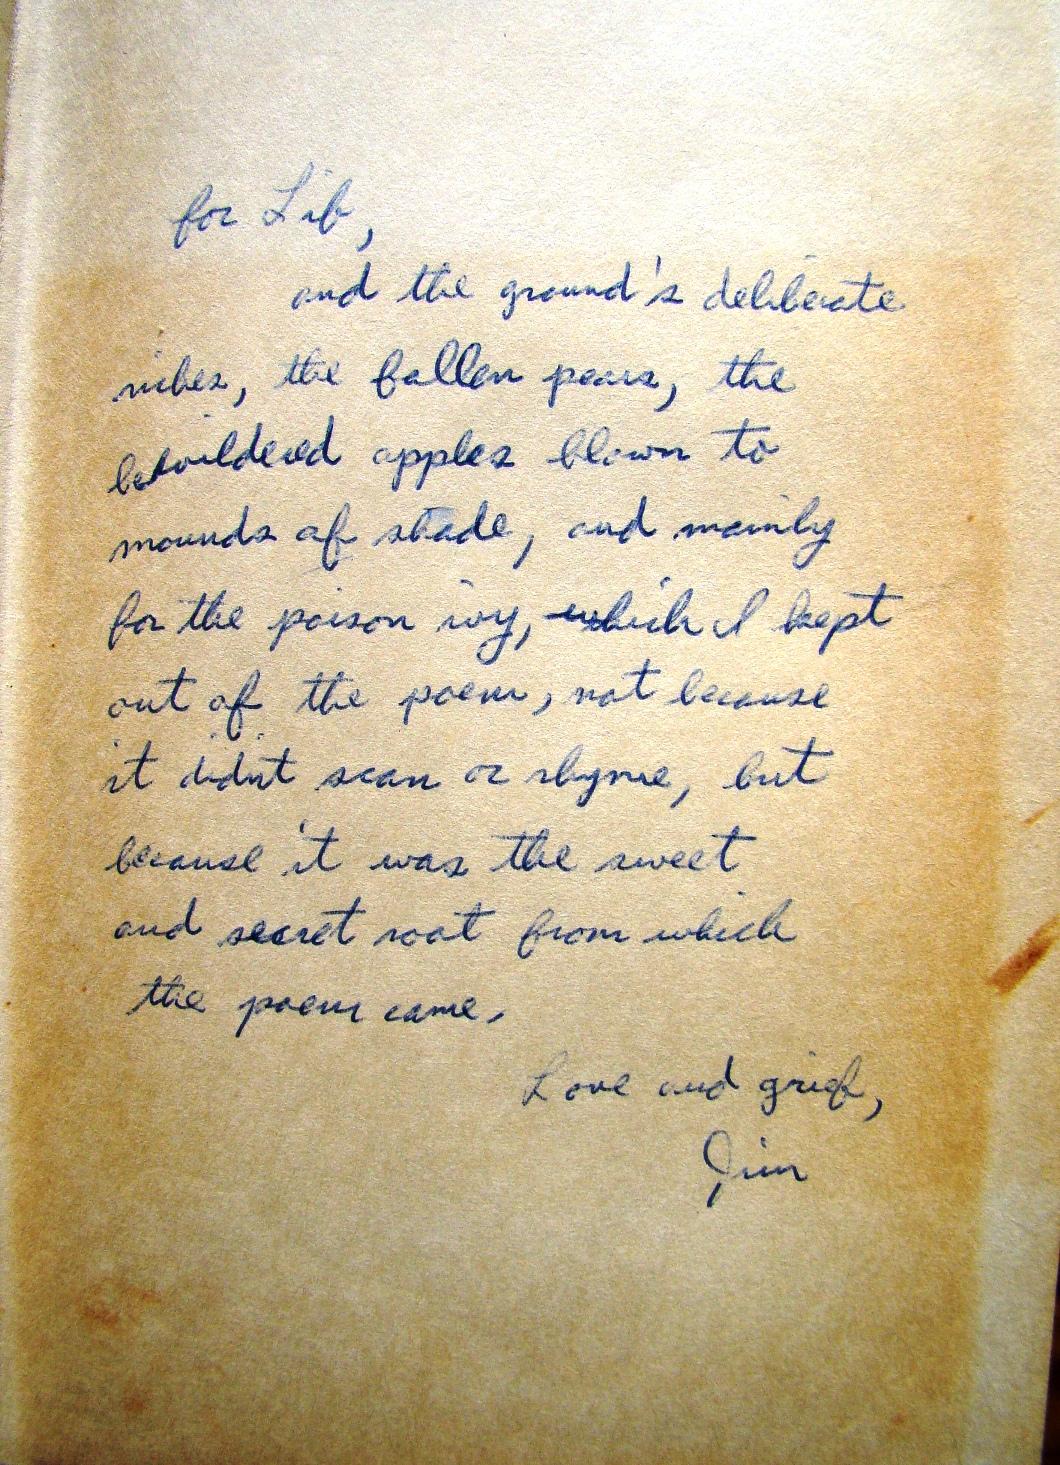 for Lib,
and the ground's deliberate
vibes, the fallen pears, the
bewildered apples blown to
mounds of shade, and mainly
for the poison ivy, which I kept
out of the poem, not because
it didn't scan or rhyme, but
because it was the sweet
and secret root from which
the poem came.
Love and grief,
Jim